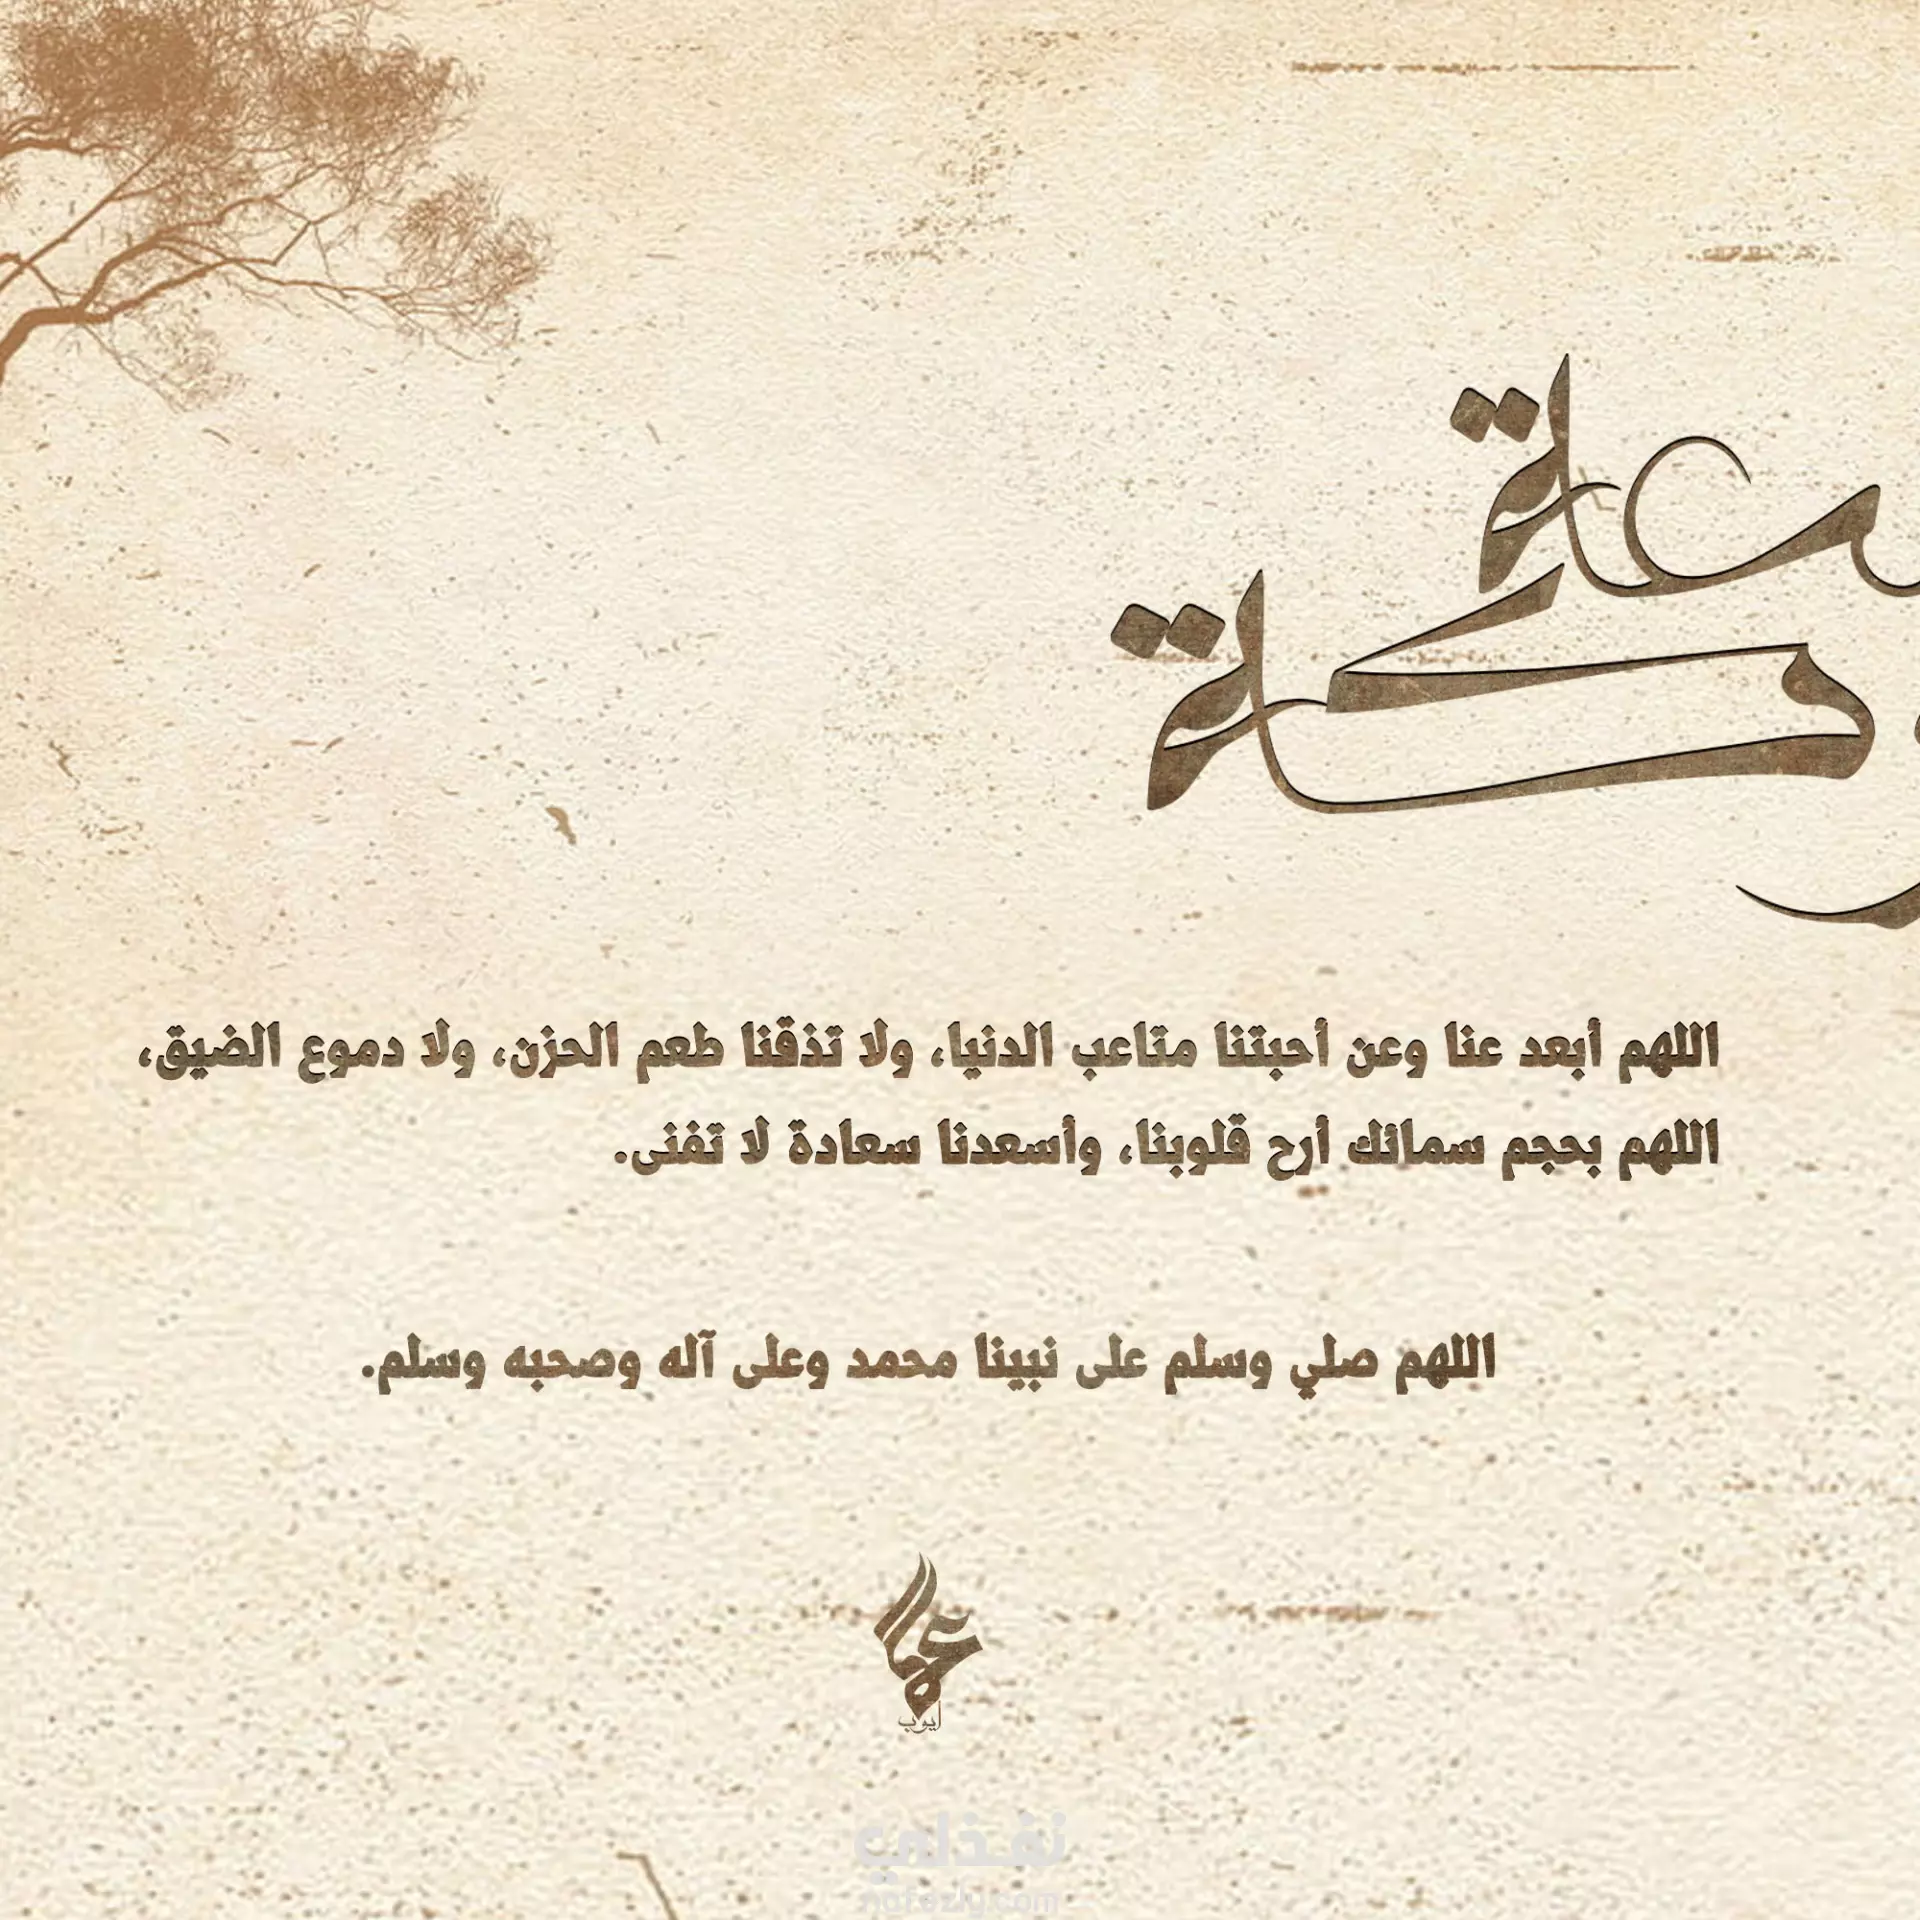 اللهم أبعد عنا وعن أحبتنا متاعب الدنيا، ولا تذقنا طعم الحزن، ولا دموع الضيق،
اللهم بحجم سمائك أرح قلوبنا، وأسعدنا سعادة لا تفنى.
اللهم صلي وسلم على نبينا محمد وعلى آله وصحبه وسلم.
أيوب
نفذلي
nafezly.com